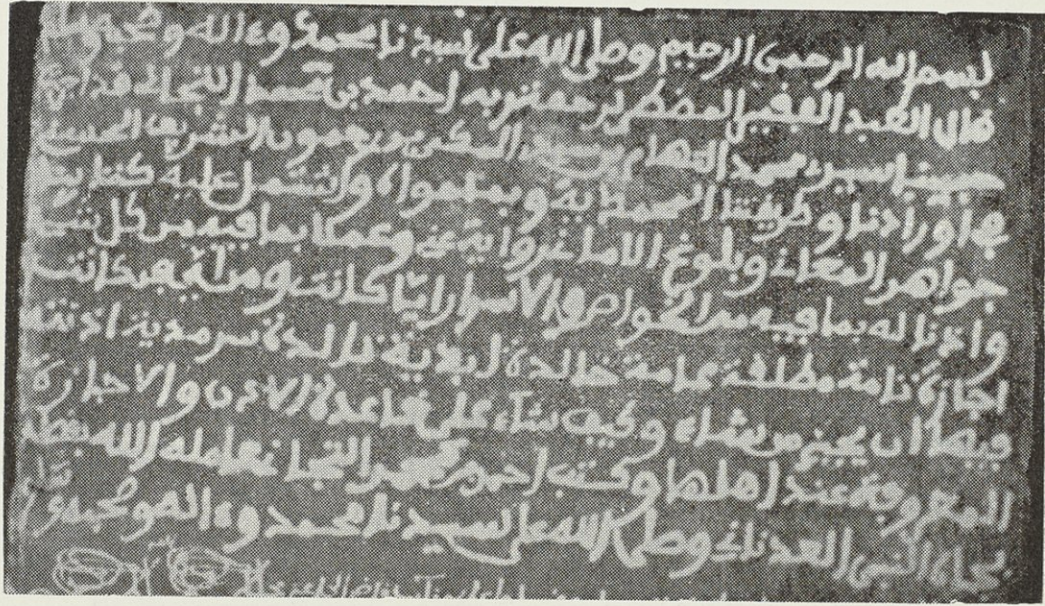 بسم الله الرحمن الرحيم وصلى الله على سيدنا محمد وءاله وصحبه وسلم
قال العبد الفقير المضطر لرحمة ربه احمد بن محمد التجاني قد اجزنا
حبيبنا سيدي محمد التهامي الشريف الحسني
في اورادنا وظيفتنا وما اشتمل عليه كتابنا
جواهر المعاني وبلوغ الاماني رواية عني وعملا بما فيه من كل شيء
واذنا له بما فيه من الخواص والاسرار ايا كانت كانت
اجازة تامة مطلقة عامة خالدة ابدية تالدة سرمدية اذنته
فيها ان يجيز من يشاء وكيف شاء على قاعدة الاذن والاجازة
المعروفة عند اهلها وكتب احمد بن محمد التجاني عامله الله بفضله
بجاه النبي العدناني وصلى الله على سيدنا محمد وءاله وصحبه